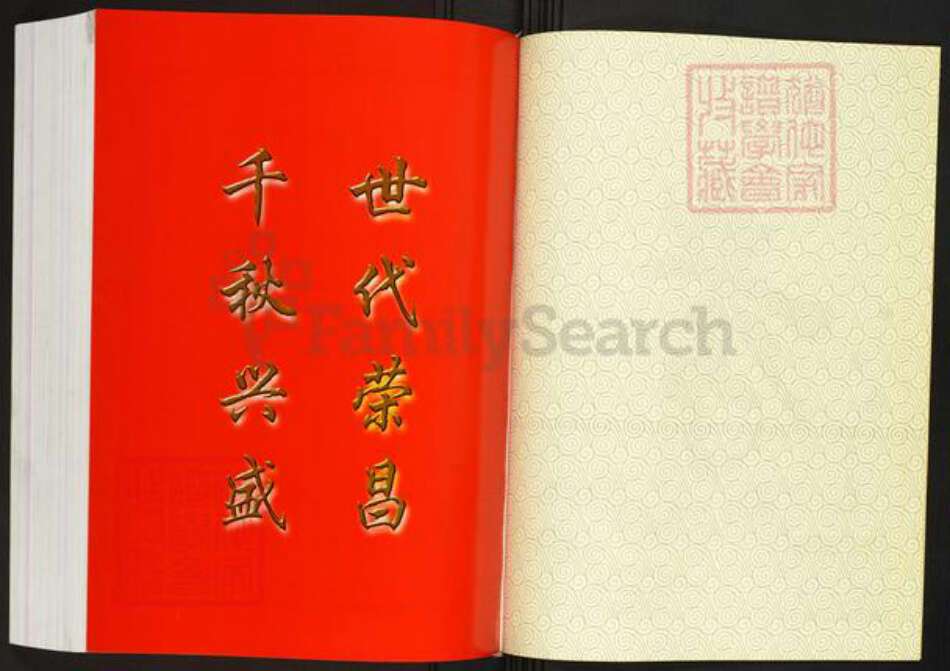 世代荣昌
千秋兴盛
FamilySearch